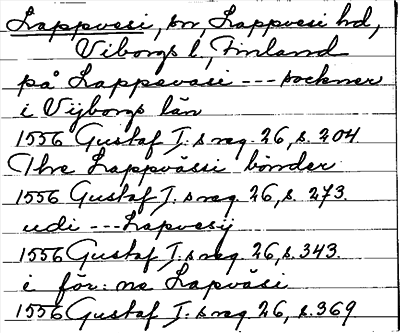 Lappvesi, sn, Lappvesi hd,
Viborgs l, Finland
på Lappavasi --- sockner
i Vijborgs län
1556 Gustaf I:s reg. 26, s. 204
Thre Lappvässi bönder
1556 Gustaf I:s reg. 26, s. 273.
udi --- Lapvesij
1556 Gustaf I:s reg. 26, s. 343.
i för:ne Lapväsi
1556 Gustaf I:s reg. 26, s. 369